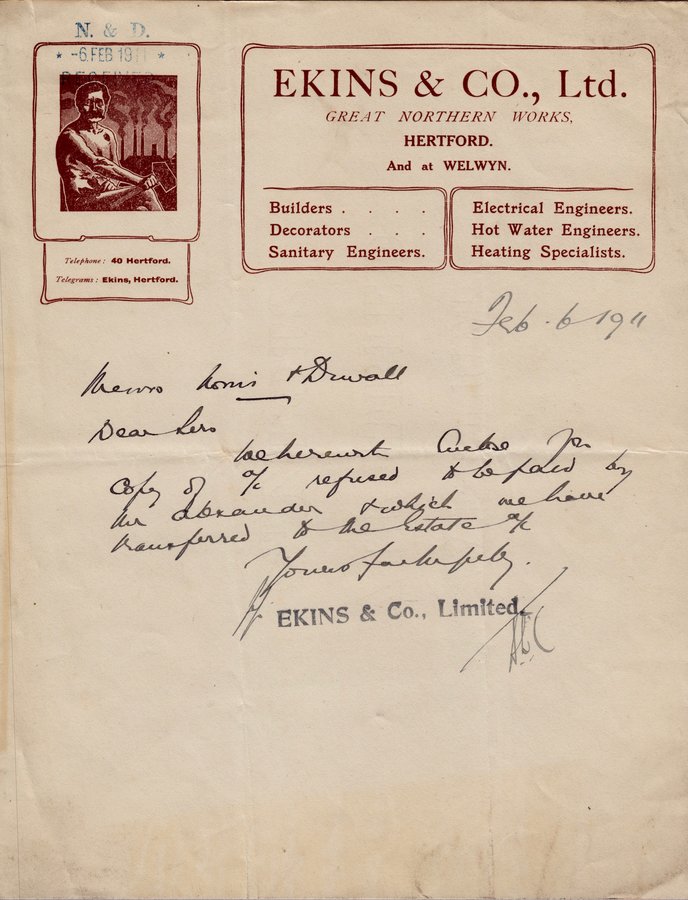 N. & D.
-6 FEB 1911
RECEIVED
EKINS & CO., Ltd.
GREAT NORTHERN WORKS,
HERTFORD.
And at WELWYN.
Builders . . . .
Decorators . . .
Sanitary Engineers.
Electrical Engineers.
Hot Water Engineers.
Heating Specialists.
Telephone: 40 Hertford.
Telegrams: Ekins, Hertford.
Feb. 6 1911
Messrs Norris & Duvall
Dear Sirs
We herewith Enclose you
Copy of a/c refused to be paid by
Mr Alexander & which we have
transferred to the Estate a/c
Yours faithfully.
EKINS & Co., Limited.